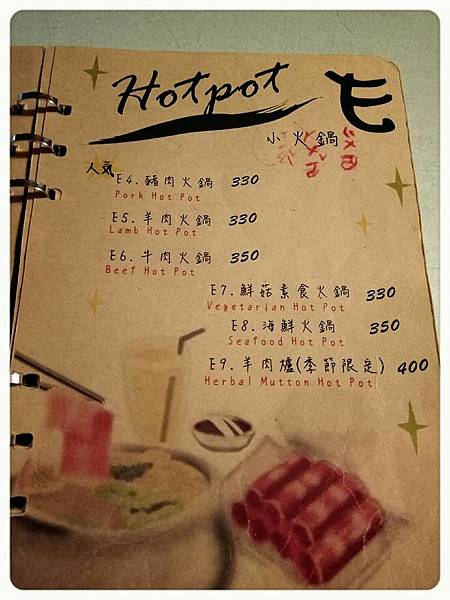 Hotpot E
小火鍋
人気 E4.豬肉火鍋 330
Pork Hot Pot
E5.羊肉火鍋 330
Lamb Hot Pot
E6.牛肉火鍋 350
Beef Hot Pot
E7.鮮菇素食火鍋 330
Vegetarian Hot Pot
E8.海鮮火鍋 350
Seafood Hot Pot
E9.羊肉爐(季節限定) 400
Herbal Mutton Hot Pot